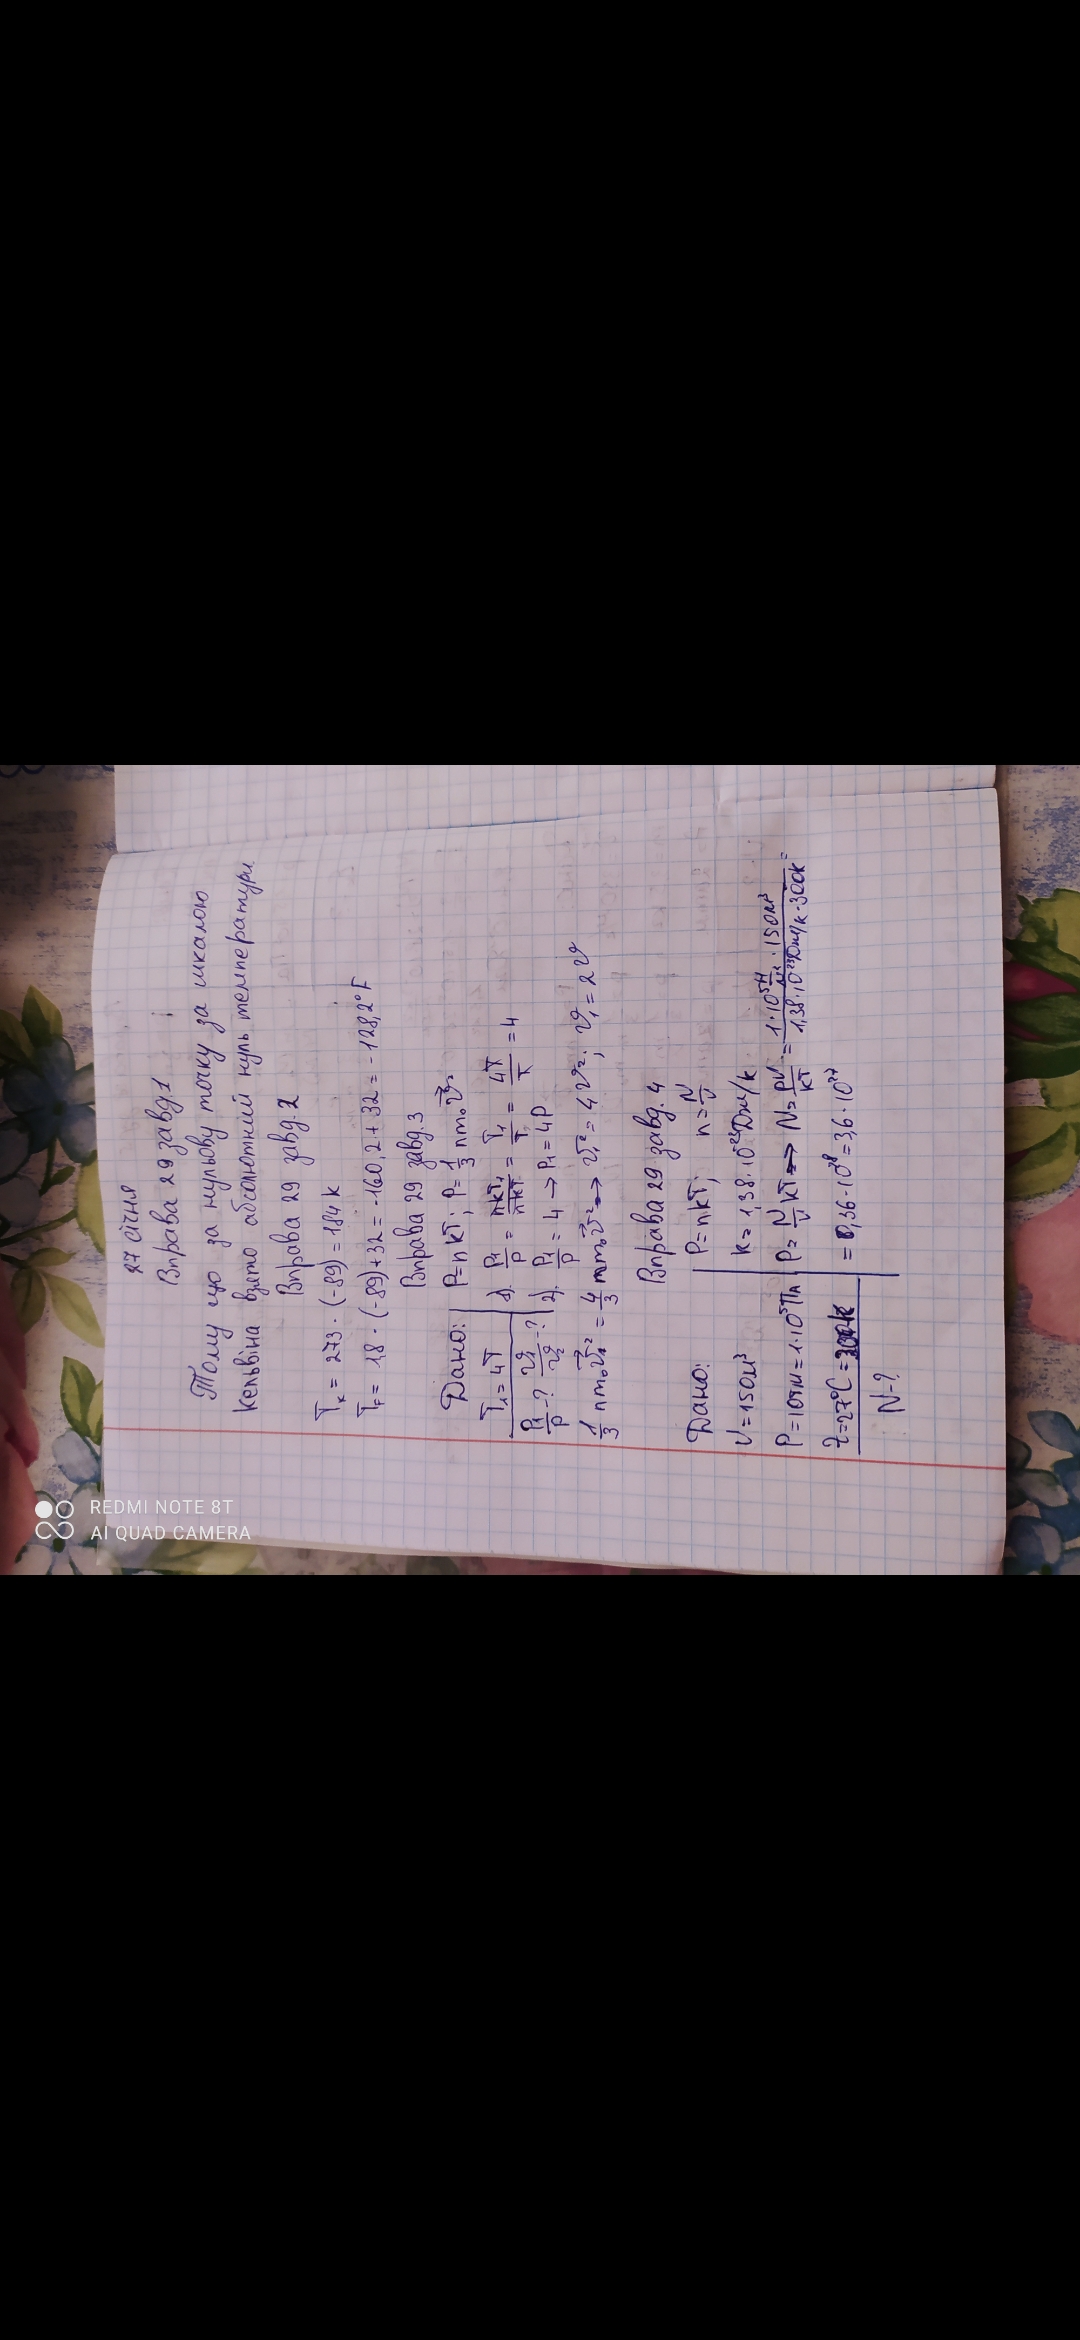 27 січня
Вправа 29 завд.1
Тому що за нульову точку за шкалою
Кельвіна взято абсолютний нуль температури.
Вправа 29 завд.2
Tк = 273 · (-89) = 184 к
TF = 1,8 · (-89) + 32 = -160,2 + 32 = -128,2°F
Вправа 29 завд.3
Дано:
T₁ = 4T
P₁/P - ? υ₁/υ₂ - ?
P = nкT; P = 1/3 nm₀υ⃗²
P₁/P = nкT₁/nкT = T₁/T = 4T/T = 4
2). P₁/P = 4 → P₁ = 4P
1/3 nm₀υ⃗₁² = 4/3 nm₀υ⃗² → υ₁² = 4υ²; υ₁ = 2υ
Вправа 29 завд.4
Дано:
V = 150м³
P = 1атм = 1·10⁵Па
t = 27°C = 300к
N - ?
P = nкT; n = N/V
к = 1,38·10⁻²³Дж/к
P = N/V кT → N = PV/кT = 1·10⁵ Н/м² · 150м³ / 1,38·10⁻²³Дж/к·300к =
= 0,36·10²⁸ = 3,6·10²⁷
REDMI NOTE 8T
AI QUAD CAMERA